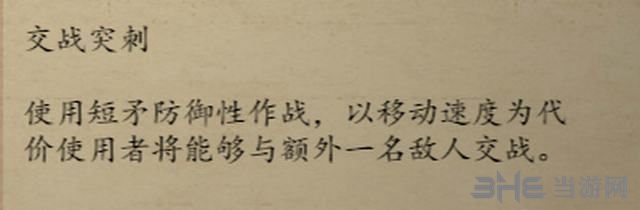 交战突刺
使用短矛防御性作战，以移动速度为代
价使用者将能够与额外一名敌人交战。
3HE 当游网